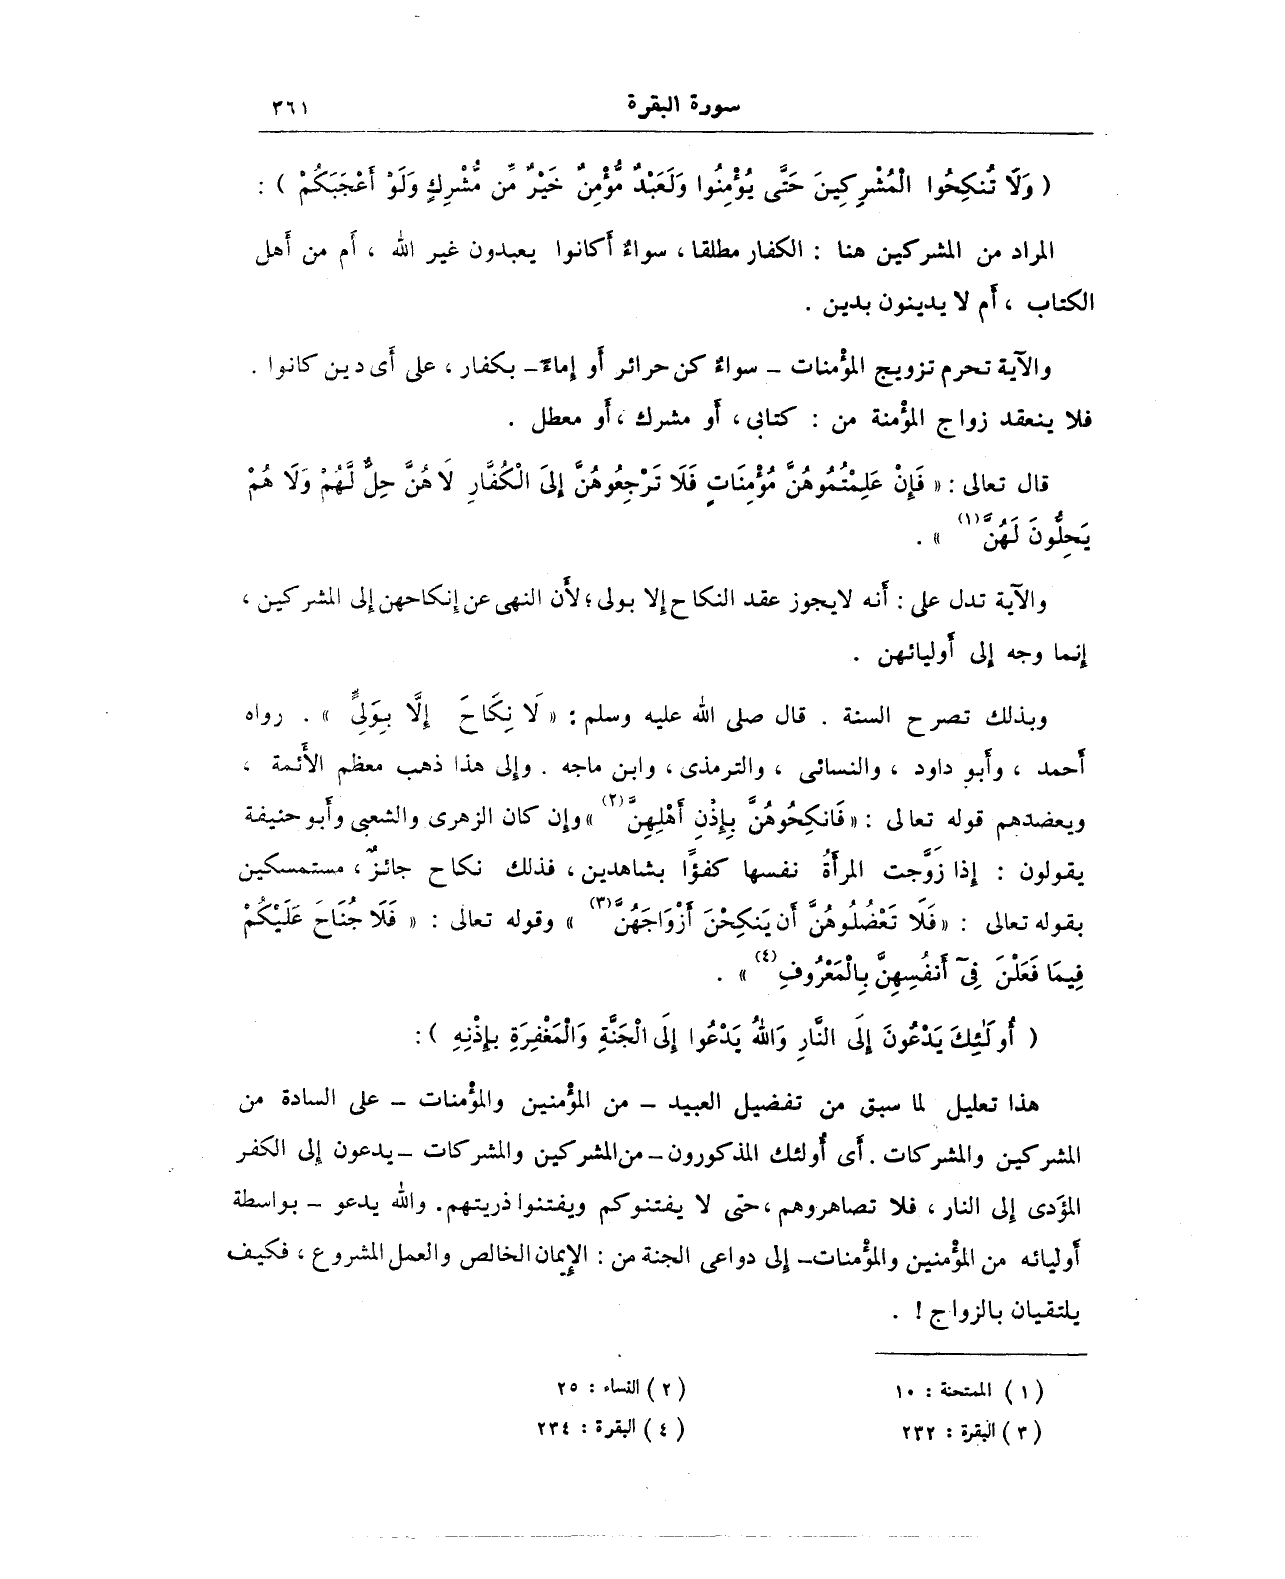 سورة البقرة ٣٦١
( وَلَا تُنكِحُوا الْمُشْرِكِينَ حَتَّى يُؤْمِنُوا وَلَعَبْدٌ مُّؤْمِنٌ خَيْرٌ مِّن مُّشْرِكٍ وَلَوْ أَعْجَبَكُمْ ) :
المراد من المشركين هنا : الكفار مطلقا ، سواءٌ أكانوا يعبدون غير الله ، أم من أهل
الكتاب ، أم لا يدينون بدين .
والآية تحرم تزويج المؤْمنات – سواءٌ كن حرائر أو إماءً – بكفار ، على أى دين كانوا .
فلا ينعقد زواج المؤْمنة من : كتابى ، أو مشرك ، أو معطل .
قال تعالى : « فَإِنْ عَلِمْتُمُوهُنَّ مُؤْمِنَاتٍ فَلَا تَرْجِعُوهُنَّ إِلَى الْكُفَّارِ لَا هُنَّ حِلٌّ لَّهُمْ وَلَا هُمْ
يَحِلُّونَ لَهُنَّ (١) » .
والآية تدل على : أنه لايجوز عقد النكاح إلا بولى ؛ لأن النهى عن إنكاحهن إلى المشركين ،
إنما وجه إلى أوليائهن .
وبذلك تصرح السنة . قال صلى الله عليه وسلم : « لَا نِكَاحَ إِلَّا بِوَلِىٍّ » . رواه
أحمد ، وأبو داود ، والنسائى ، والترمذى ، وابن ماجه . وإلى هذا ذهب معظم الأئمة ،
ويعضدهم قوله تعالى : « فَانكِحُوهُنَّ بِإِذْنِ أَهْلِهِنَّ (٢) » وإن كان الزهرى والشعبى وأبو حنيفة
يقولون : إذا زَوَّجت المرأَةُ نفسها كفؤًا بشاهدين ، فذلك نكاح جائزٌ ، مستمسكين
بقوله تعالى : « فَلَا تَعْضُلُوهُنَّ أَن يَنكِحْنَ أَزْوَاجَهُنَّ (٣) » وقوله تعالى : « فَلَا جُنَاحَ عَلَيْكُمْ
فِيمَا فَعَلْنَ فِىٓ أَنفُسِهِنَّ بِالْمَعْرُوفِ (٤) » .
( أُولَٰئِكَ يَدْعُونَ إِلَى النَّارِ وَاللهُ يَدْعُوا إِلَى الْجَنَّةِ وَالْمَغْفِرَةِ بِإِذْنِهِ ) :
هذا تعليل لما سبق من تفضيل العبيد – من المؤْمنين والمؤْمنات – على السادة من
المشركين والمشركات . أى أُولئك المذكورون – من المشركين والمشركات – يدعون إلى الكفر
المؤَدى إلى النار ، فلا تصاهروهم ، حتى لا يفتنوكم ويفتنوا ذريتهم . والله يدعو – بواسطة
أوليائه من المؤْمنين والمؤْمنات – إلى دواعى الجنة من : الإيمان الخالص والعمل المشروع ، فكيف
يلتقيان بالزواج ! .
( ١ ) الممتحنة : ١٠ ( ٢ ) النساء : ٢٥
( ٣ ) البقرة : ٢٣٢ ( ٤ ) البقرة : ٢٣٤